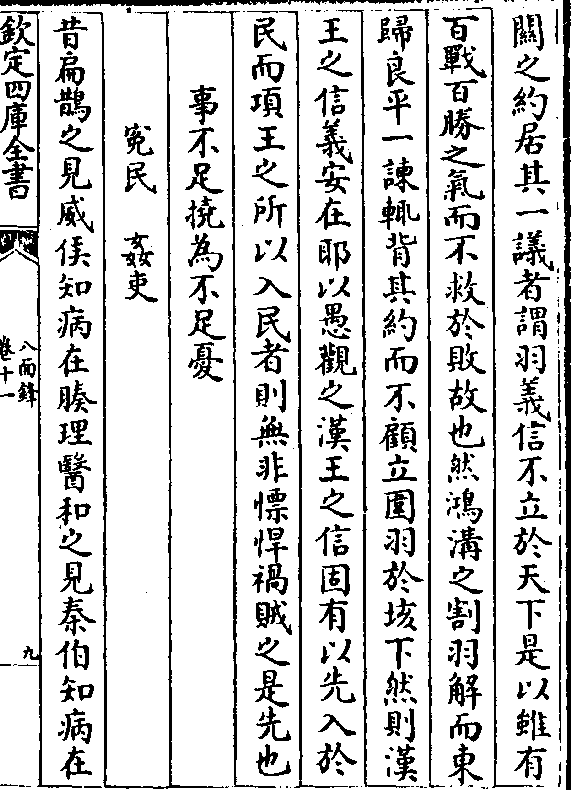 關之約居其一議者謂羽義信不立於天下是以雖有
百戰百勝之氣而不救於敗故也然鴻溝之割羽解而東
歸良平一諫輒背其約而不顧立圍羽於垓下然則漢
王之信義安在耶以愚觀之漢王之信固有以先入於
民而項王之所以入民者則無非慓悍禍賊之是先也
事不足撓為不足憂
寃民 姦吏
昔扁鵲之見威侯知病在腠理醫和之見秦伯知病在
欽定四庫全書
八面鋒
卷十一
九